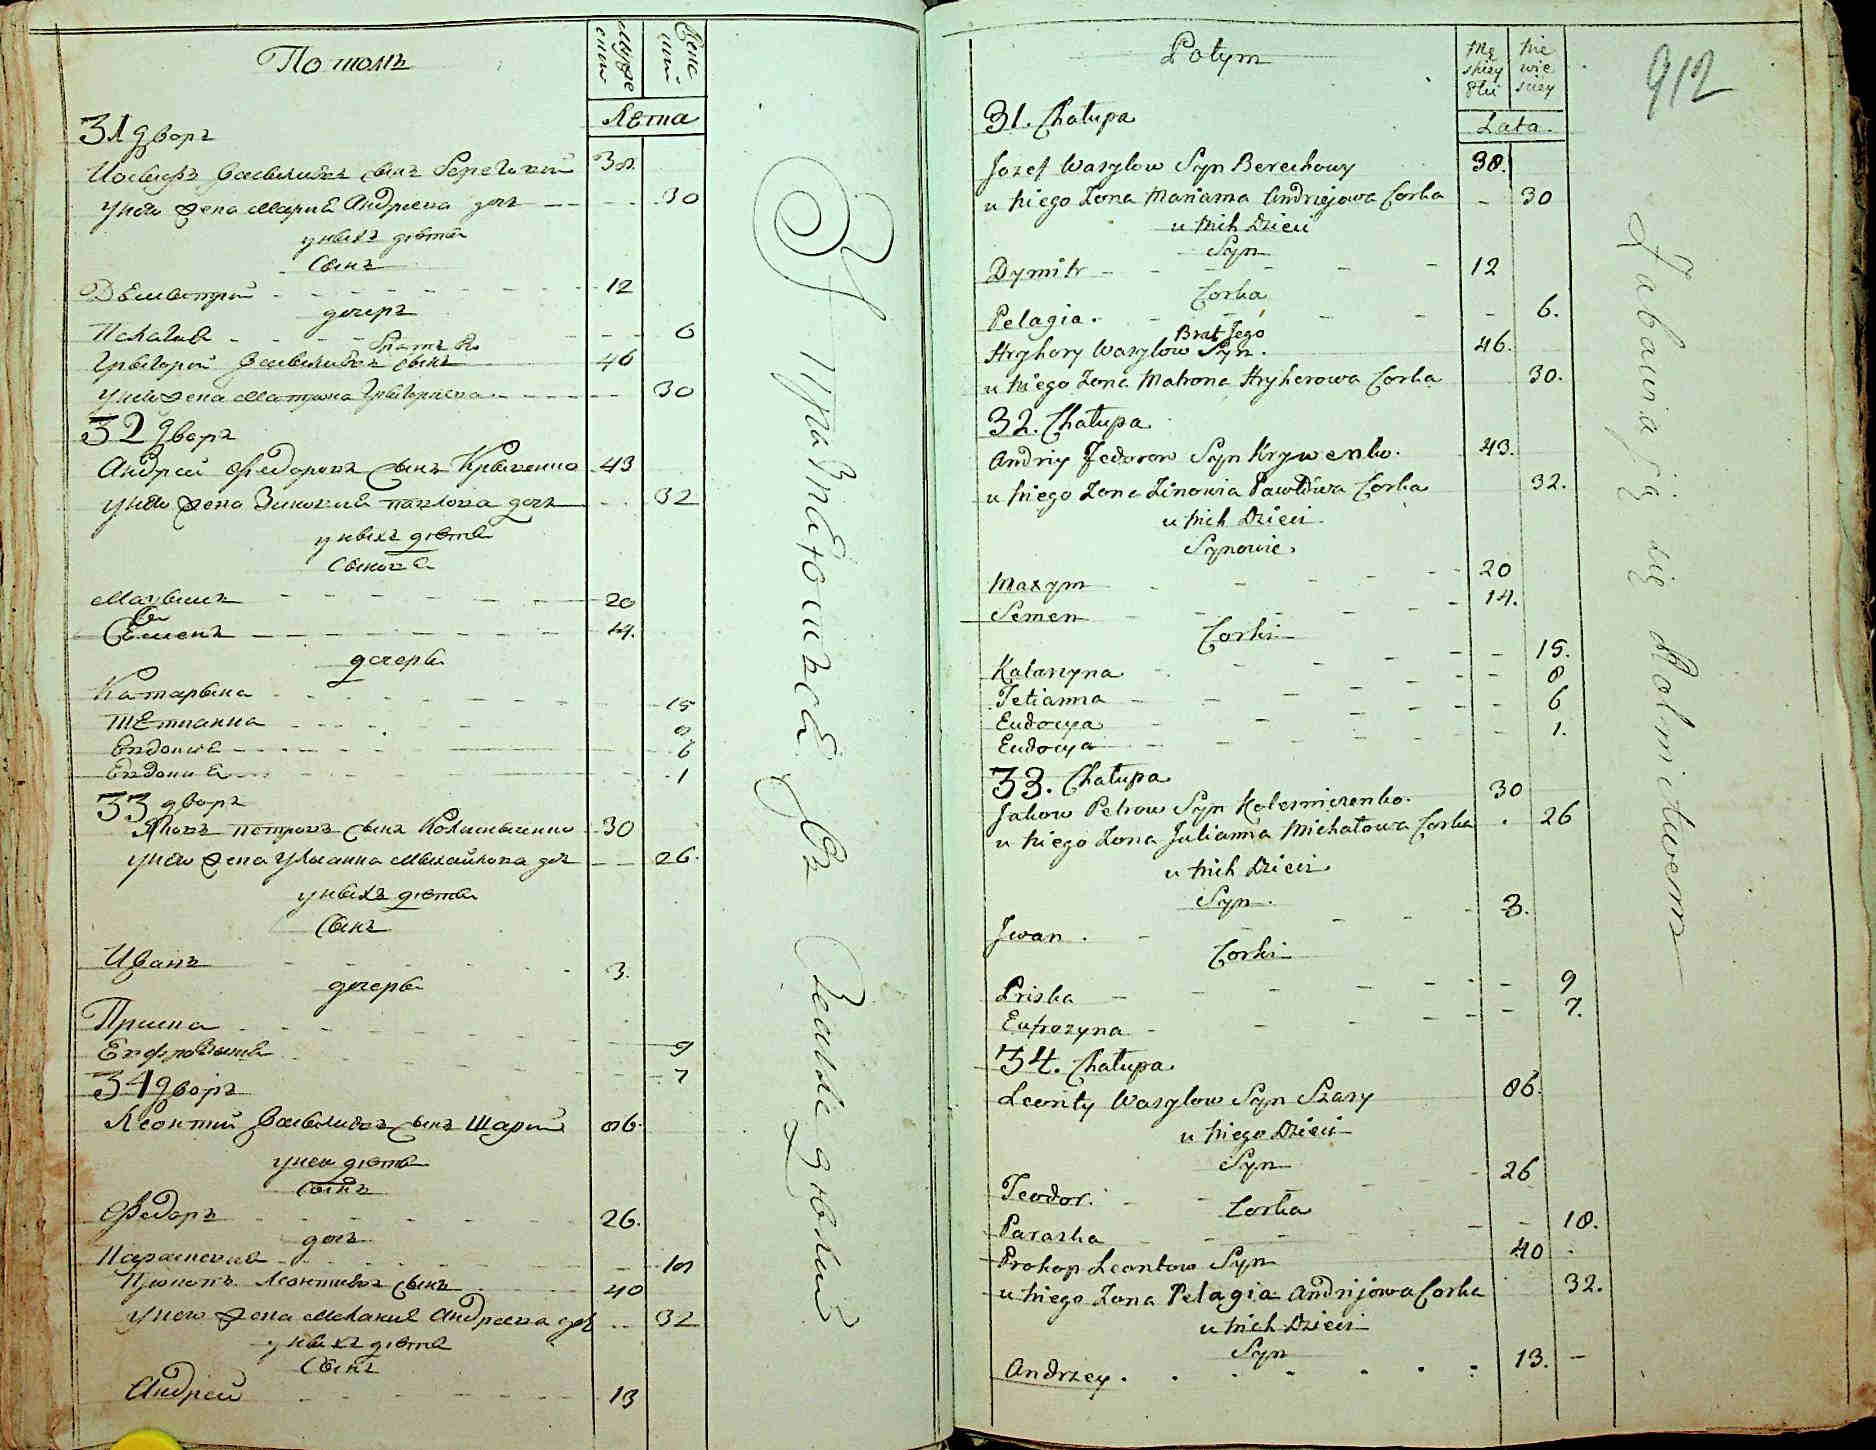 Потомъ
Мужескии
Женскии
Лета
31 дворъ
Иосыфъ Васылиевъ сынъ 38.
у него жена Мария Андреева доч 30
у ныхъ дети
Сынъ
Дємытрый 12
дочеръ
Пелагия 6
братъ Его
Грыгорый Васылиевъ сынъ 46
у него жена Матрона Грыгориева 30
32 дворъ
Андрей Федоровъ сынъ Крывенко 43
у него жена Зиновия павлова дочь 32
у ныхъ дети
Сыновя
Максымъ 20
Сєменъ 14.
дочеры
Катарына 15
Тєтианна 8
Евдокия 6
Евдокия 1
33 дворъ
Яковъ петровъ сынъ Коломыченко 30
у него жена Улианна Мыхайлова доч 26.
у ныхъ дети
Сынъ
Иванъ 3.
дочеры
Приска 9
Евфрозына 7
34 дворъ
Леонтий Васылиевъ сынъ Шарый 86.
у него дети
Сынъ
Федоръ 26.
дочь
Параскевия 18
Прокопъ Леонтиевъ сынъ 40
у него жена Мелания Андреева доч 32
у ныхъ дети
Сынъ
Андрей 13
Упражняются Въ Земледелии
Potym
Męskiey Płci
Niewieściey
Lata.
912
31. Chałupa
Jozef Wasylow Syn Berechowy 38.
u Niego Żona Marianna Andriejowa Corka 30
u Nich Dzieci
Syn
Dymitr 12
Corka
Pelagia. 6.
Brat Jego
Hryhory Wasylow Syn. 46.
u Niego Żona Matrona Hryherowa Corka 30.
32. Chałupa
Andriy Fedorow Syn Krywenko. 43.
u Niego Żona Zinowia Pawłowa Corka 32.
u Nich Dzieci
Synowie.
Maxym 20
Semen 14.
Corki
Katarzyna 15.
Tetianna 8
Eudocya 6
Eudocya 1.
33. Chałupa
Jakow Petrow Syn Kolesniczenko. 30
u Niego Żona Julianna Michałowa Corka 26
u Nich Dzieci
Syn.
Jwan. 3.
Corki
Priska 9
Eufrozyna 7.
34. Chałupa
Leonty Wasylow Syn Szary 86.
u Niego Dzieci
Syn
Teodor. 26
Corka
Paraska 18.
Prokop Leontow Syn 40
u Niego Żona Pelagia Andrijowa Corka 32.
u Nich Dzieci
Syn
Andrzey. 13.
Zabawiają się Rolnictwem